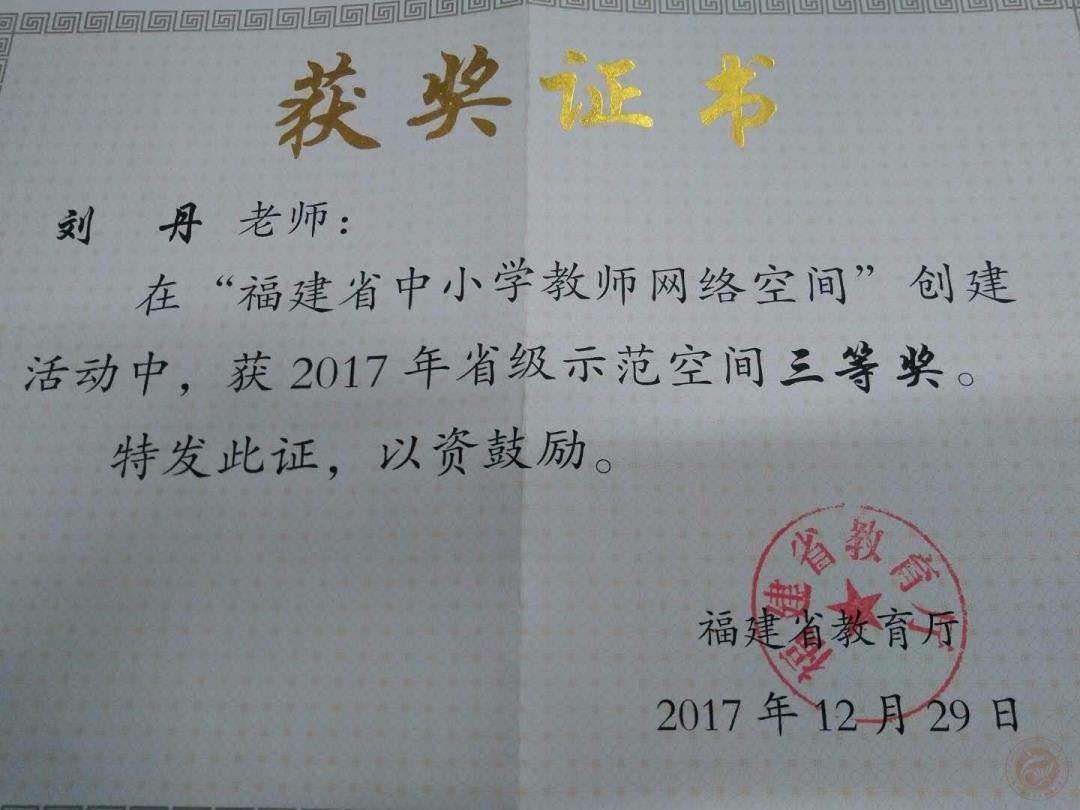 获奖证书
刘 丹 老师：
在“福建省中小学教师网络空间”创建
活动中，获 2017 年省级示范空间三等奖。
特发此证，以资鼓励。
福建省教育厅
福建省教育厅
2017 年 12 月 29 日